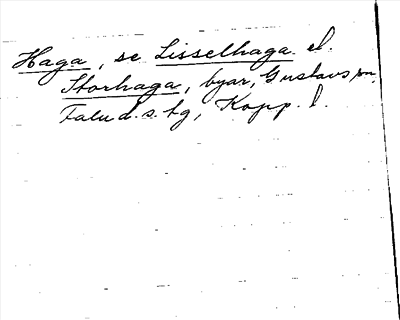 Haga, se Lisselhaga el.
Storhaga, byar, Gustavs sn,
Falu d. s. tg, Kopp. l.